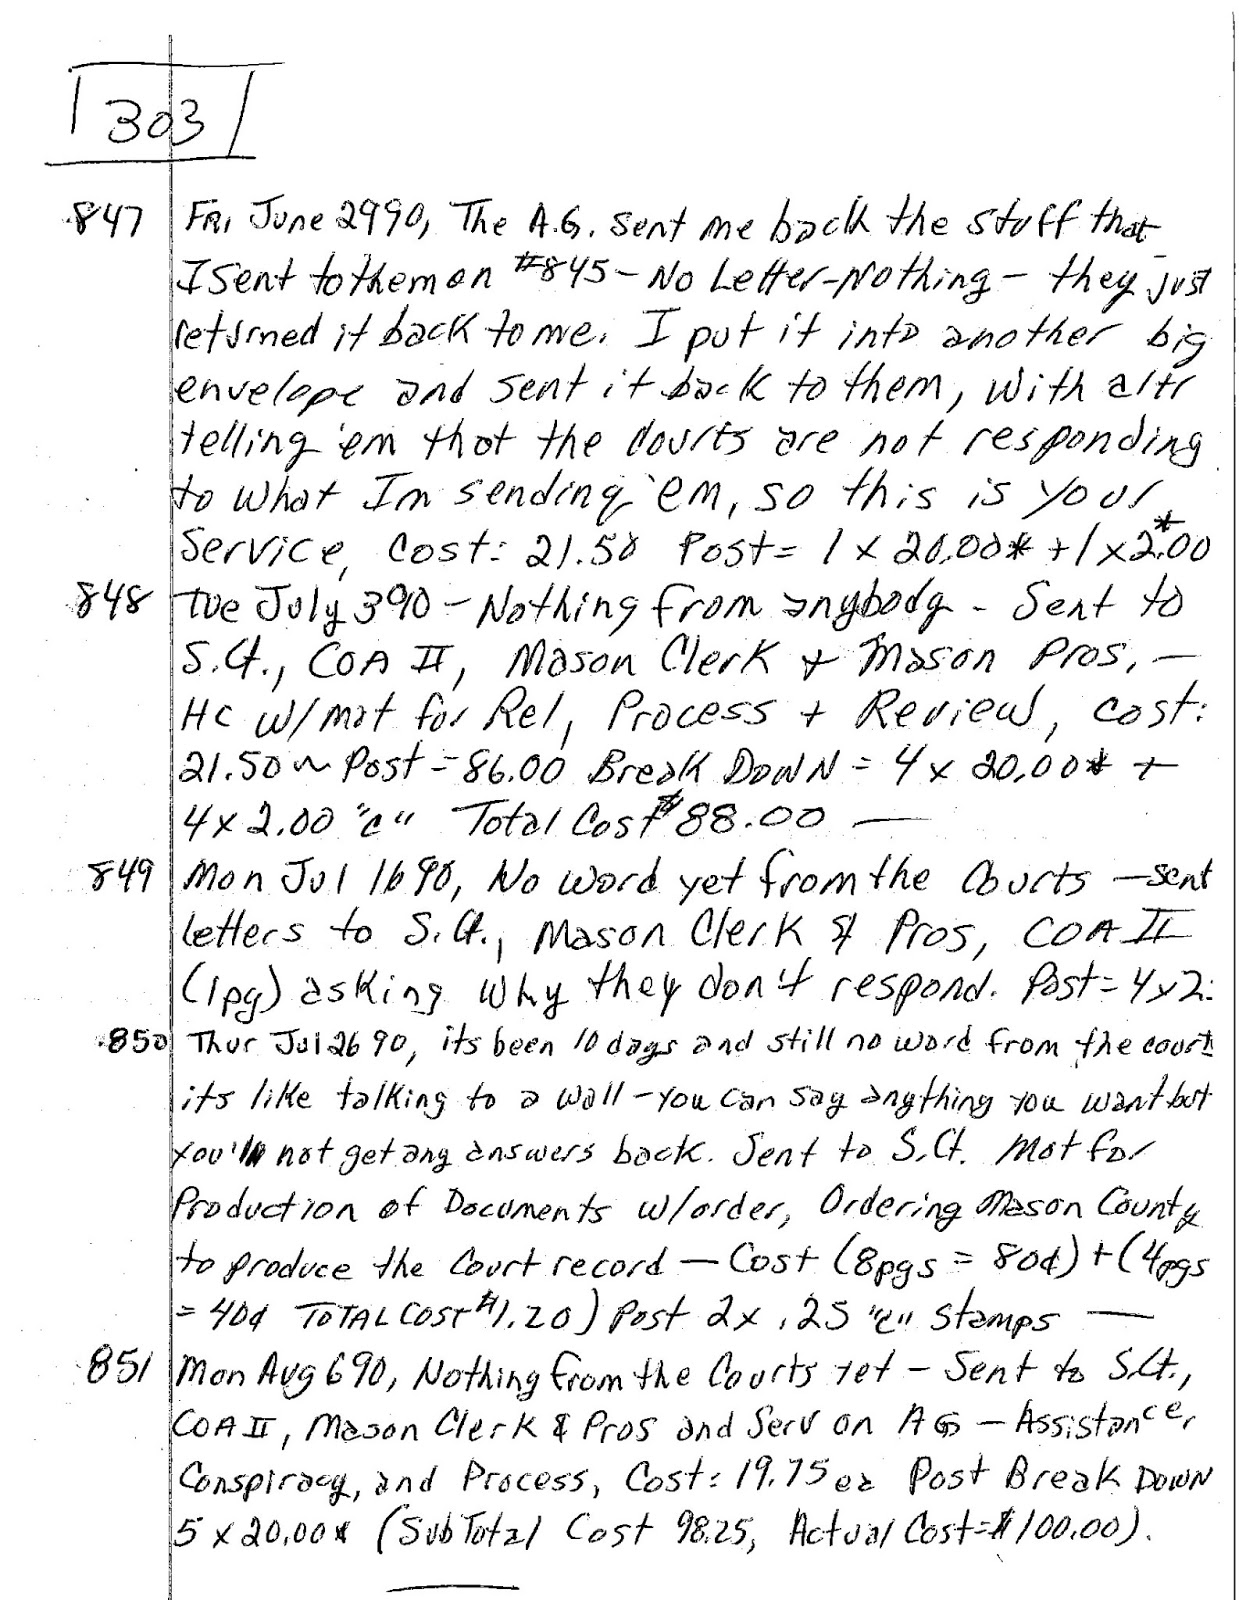 303
847 Fri June 29 90, The A.G. sent me back the stuff that
I sent to them on #845 - No Letter - Nothing - they just
returned it back to me. I put it into another big
envelope and sent it back to them, with a ltr
telling 'em that the courts are not responding
to what Im sending 'em, so this is your
Service, Cost: 21.50 Post = 1 x 20.00* + 1 x 2.00*
848 Tue July 3 90 - Nothing from anybody - Sent to
S.Ct., COA II, Mason Clerk + Mason Pros, —
HC w/mot for Rel, Process + Review, Cost:
21.50 ~ Post = 86.00 Break Down = 4 x 20.00* +
4 x 2.00 "c" Total Cost $88.00 —
849 Mon Jul 16 90, No word yet from the Courts - sent
letters to S.Ct., Mason Clerk & Pros, COA II
(1pg) asking why they don't respond. Post = 4x2:
850 Thur Jul 26 90, its been 10 days and still no word from the court
its like talking to a wall - you can say anything you want but
you'll not get any answers back. Sent to S.Ct. Mot for
Production of Documents w/order, Ordering Mason County
to produce the Court record — Cost (8pgs = 80¢) + (4pgs
= 40¢ TOTAL COST $1.20) Post 2x .25 "c" stamps —
851 Mon Aug 6 90, Nothing from the Courts yet - Sent to S.Ct.,
COA II, Mason Clerk & Pros and Serv on AG - Assistance,
Conspiracy, and Process, Cost: 19.75 ea Post Break Down
5 x 20.00* (Sub Total Cost 98.25, Actual Cost = $100.00).